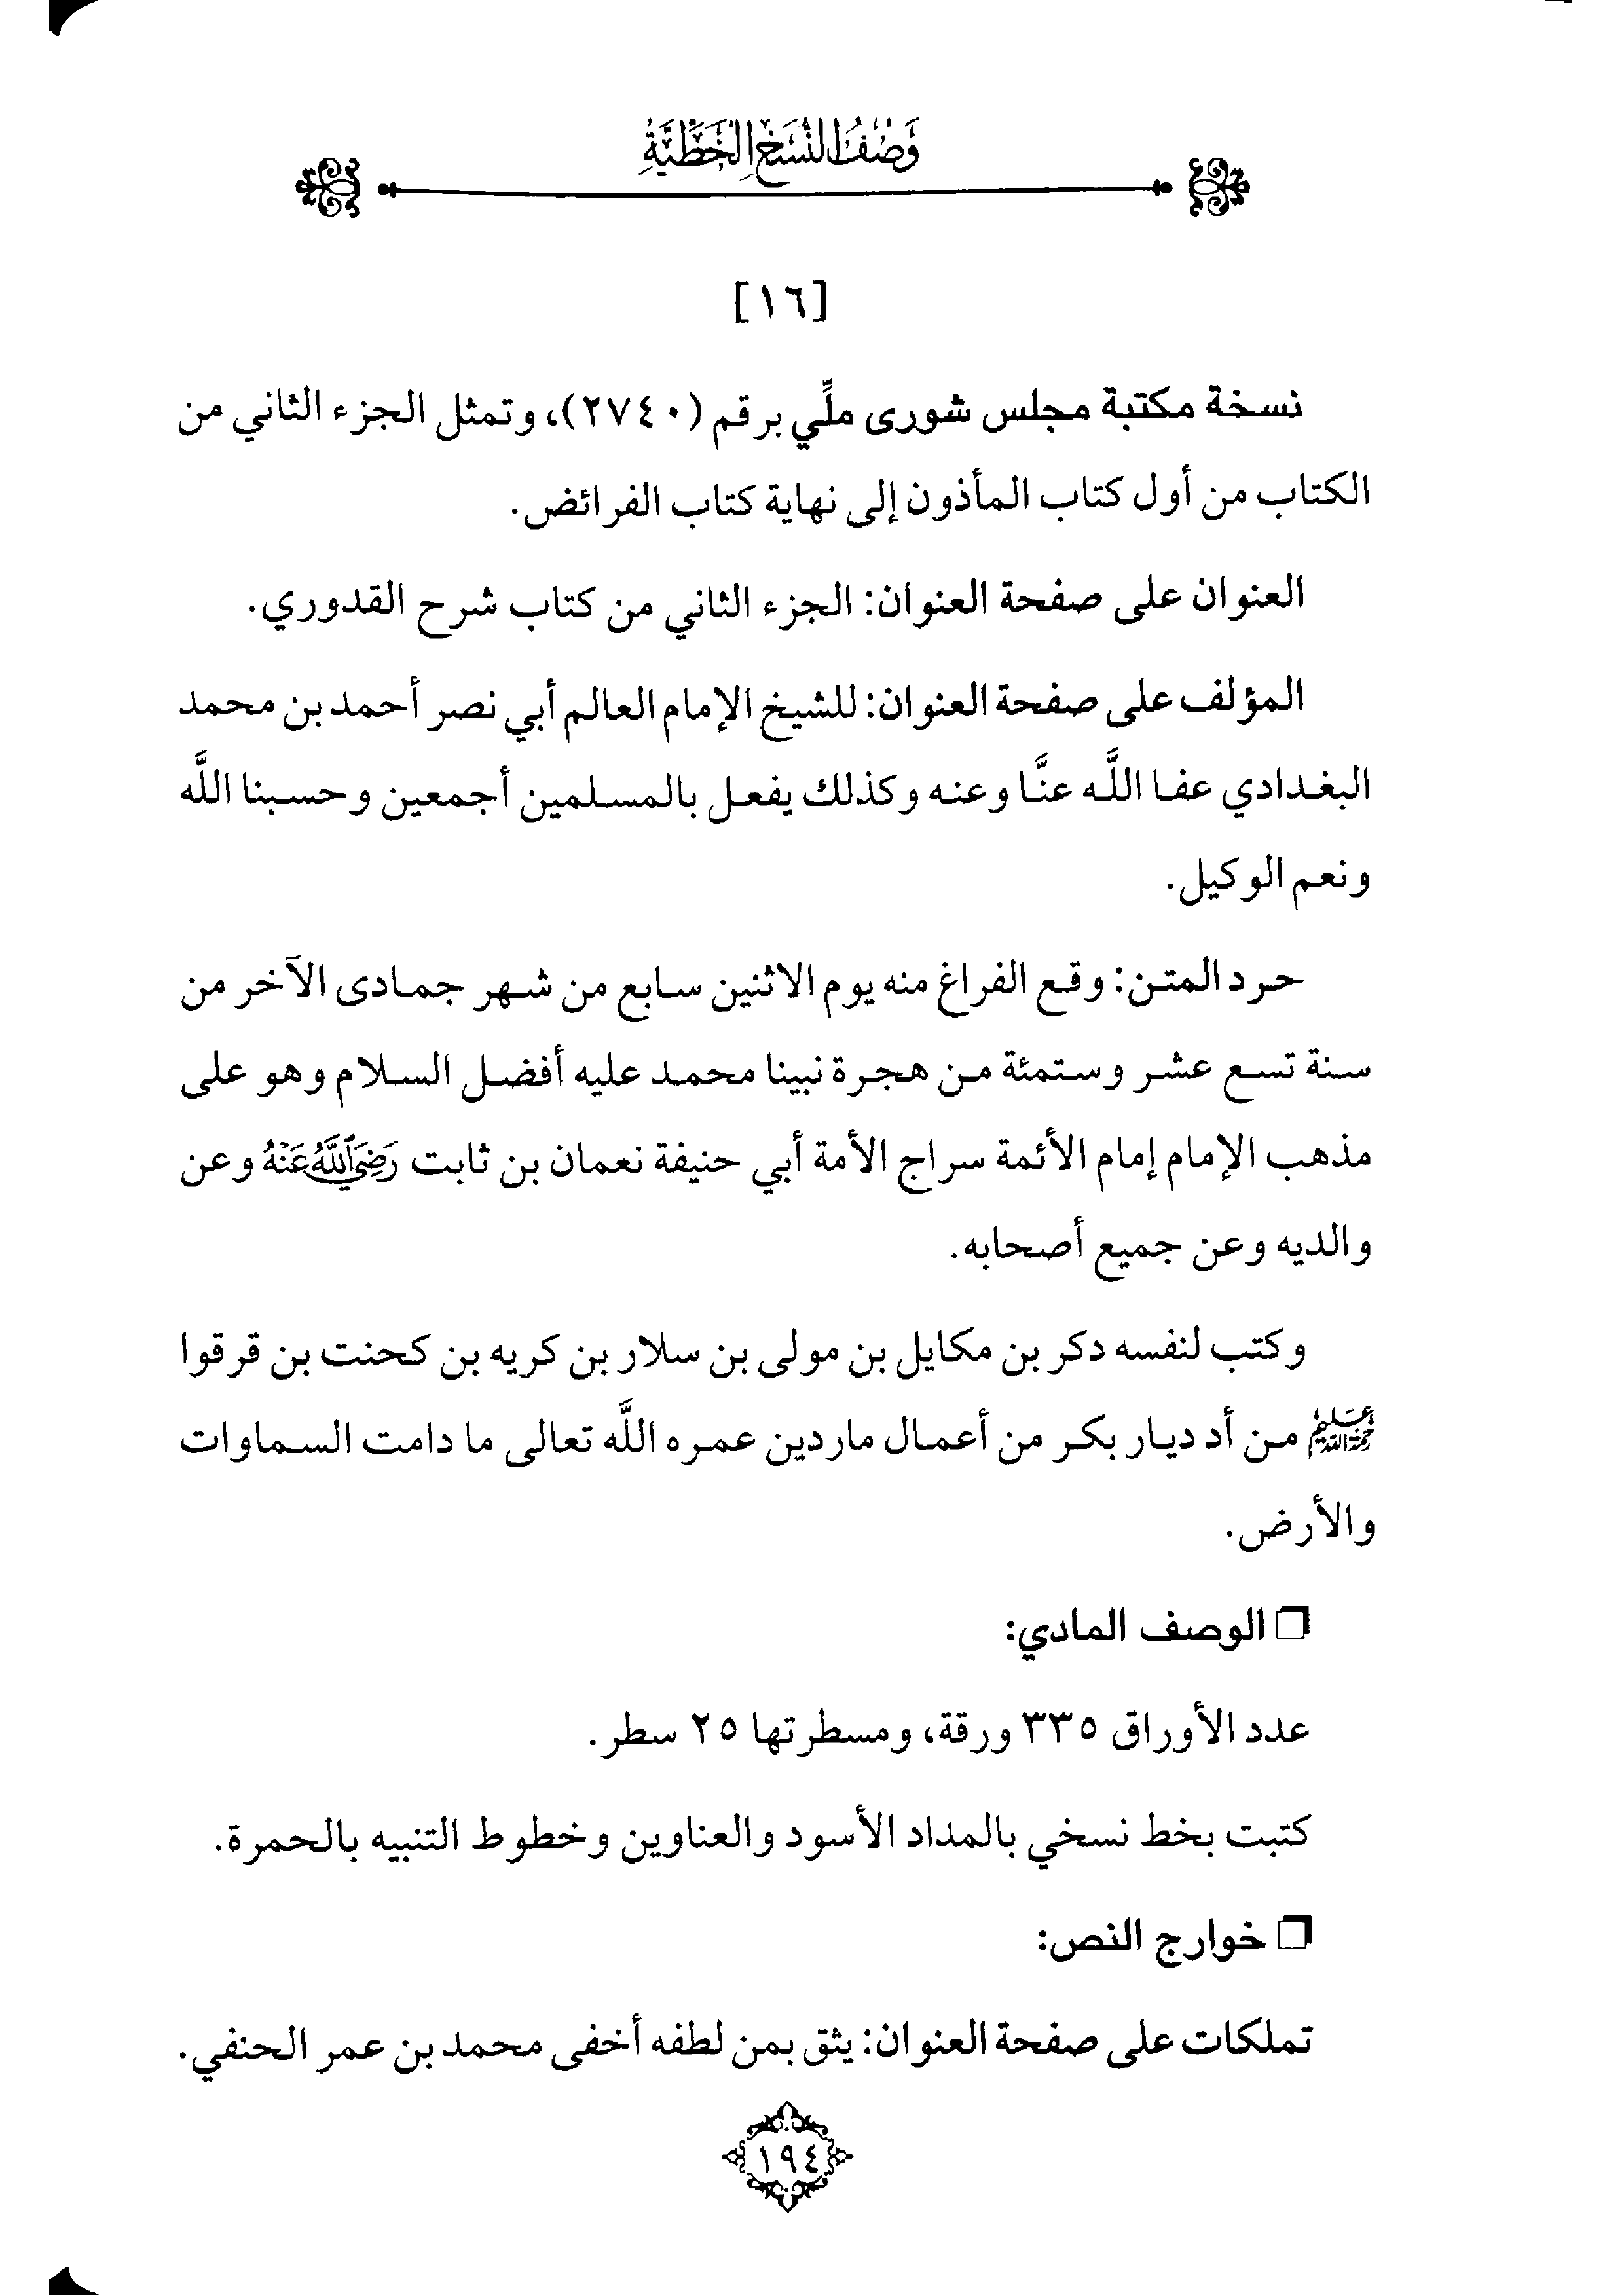 وَصْفُ النُّسَخِ الخَطِّيَّةِ
[١٦]
نسخة مكتبة مجلس شورى ملِّي برقم (٢٧٤٠)، وتمثل الجزء الثاني من
الكتاب من أول كتاب المأذون إلى نهاية كتاب الفرائض.
العنوان على صفحة العنوان: الجزء الثاني من كتاب شرح القدوري.
المؤلف على صفحة العنوان: للشيخ الإمام العالم أبي نصر أحمد بن محمد
البغدادي عفا اللَّه عنَّا وعنه وكذلك يفعل بالمسلمين أجمعين وحسبنا اللَّه
ونعم الوكيل.
حرد المتن: وقع الفراغ منه يوم الاثنين سابع من شهر جمادى الآخر من
سنة تسع عشر وستمئة من هجرة نبينا محمد عليه أفضل السلام وهو على
مذهب الإمام إمام الأئمة سراج الأمة أبي حنيفة نعمان بن ثابت رَضِيَ اللَّهُ عَنْهُ وعن
والديه وعن جميع أصحابه.
وكتب لنفسه دكر بن مكايل بن مولى بن سلار بن كريه بن كحنت بن قرقوا
رحمة الله عليهم من أد ديار بكر من أعمال ماردين عمره اللَّه تعالى ما دامت السماوات
والأرض.
❒ الوصف المادي:
عدد الأوراق ٣٣٥ ورقة، ومسطرتها ٢٥ سطر.
كتبت بخط نسخي بالمداد الأسود والعناوين وخطوط التنبيه بالحمرة.
❒ خوارج النص:
تملكات على صفحة العنوان: يثق بمن لطفه أخفى محمد بن عمر الحنفي.
١٩٤